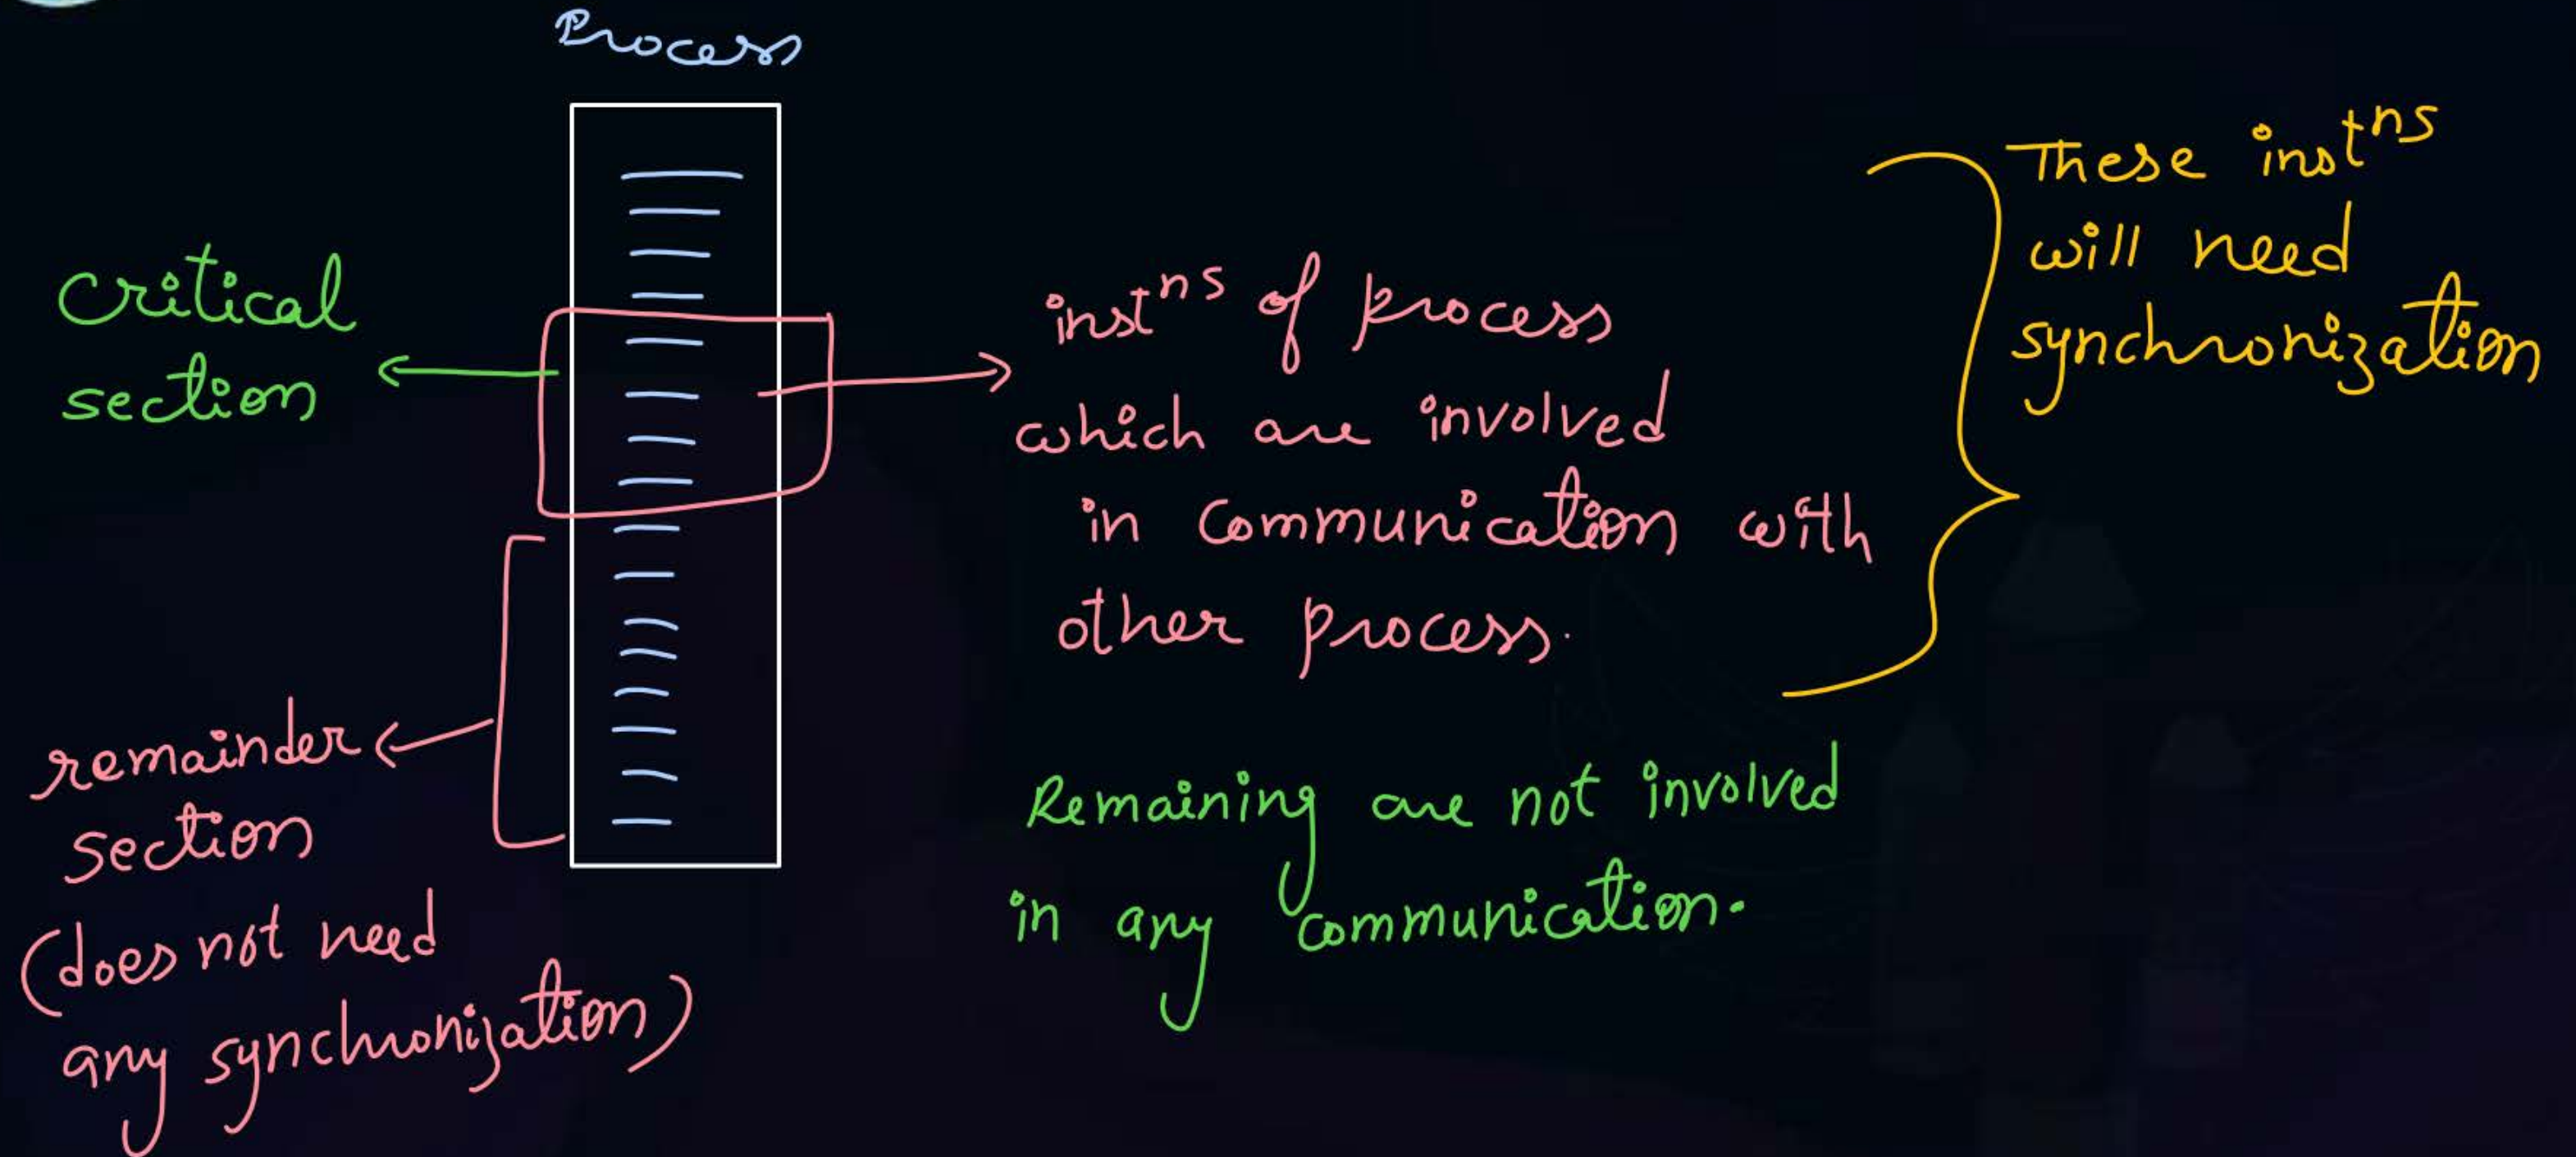 Process
critical
section
inst^ns of process
which are involved
in communication with
other process.
These inst^ns
will need
synchronization
remainder
section
(does not need
any synchronization)
Remaining are not involved
in any communication.